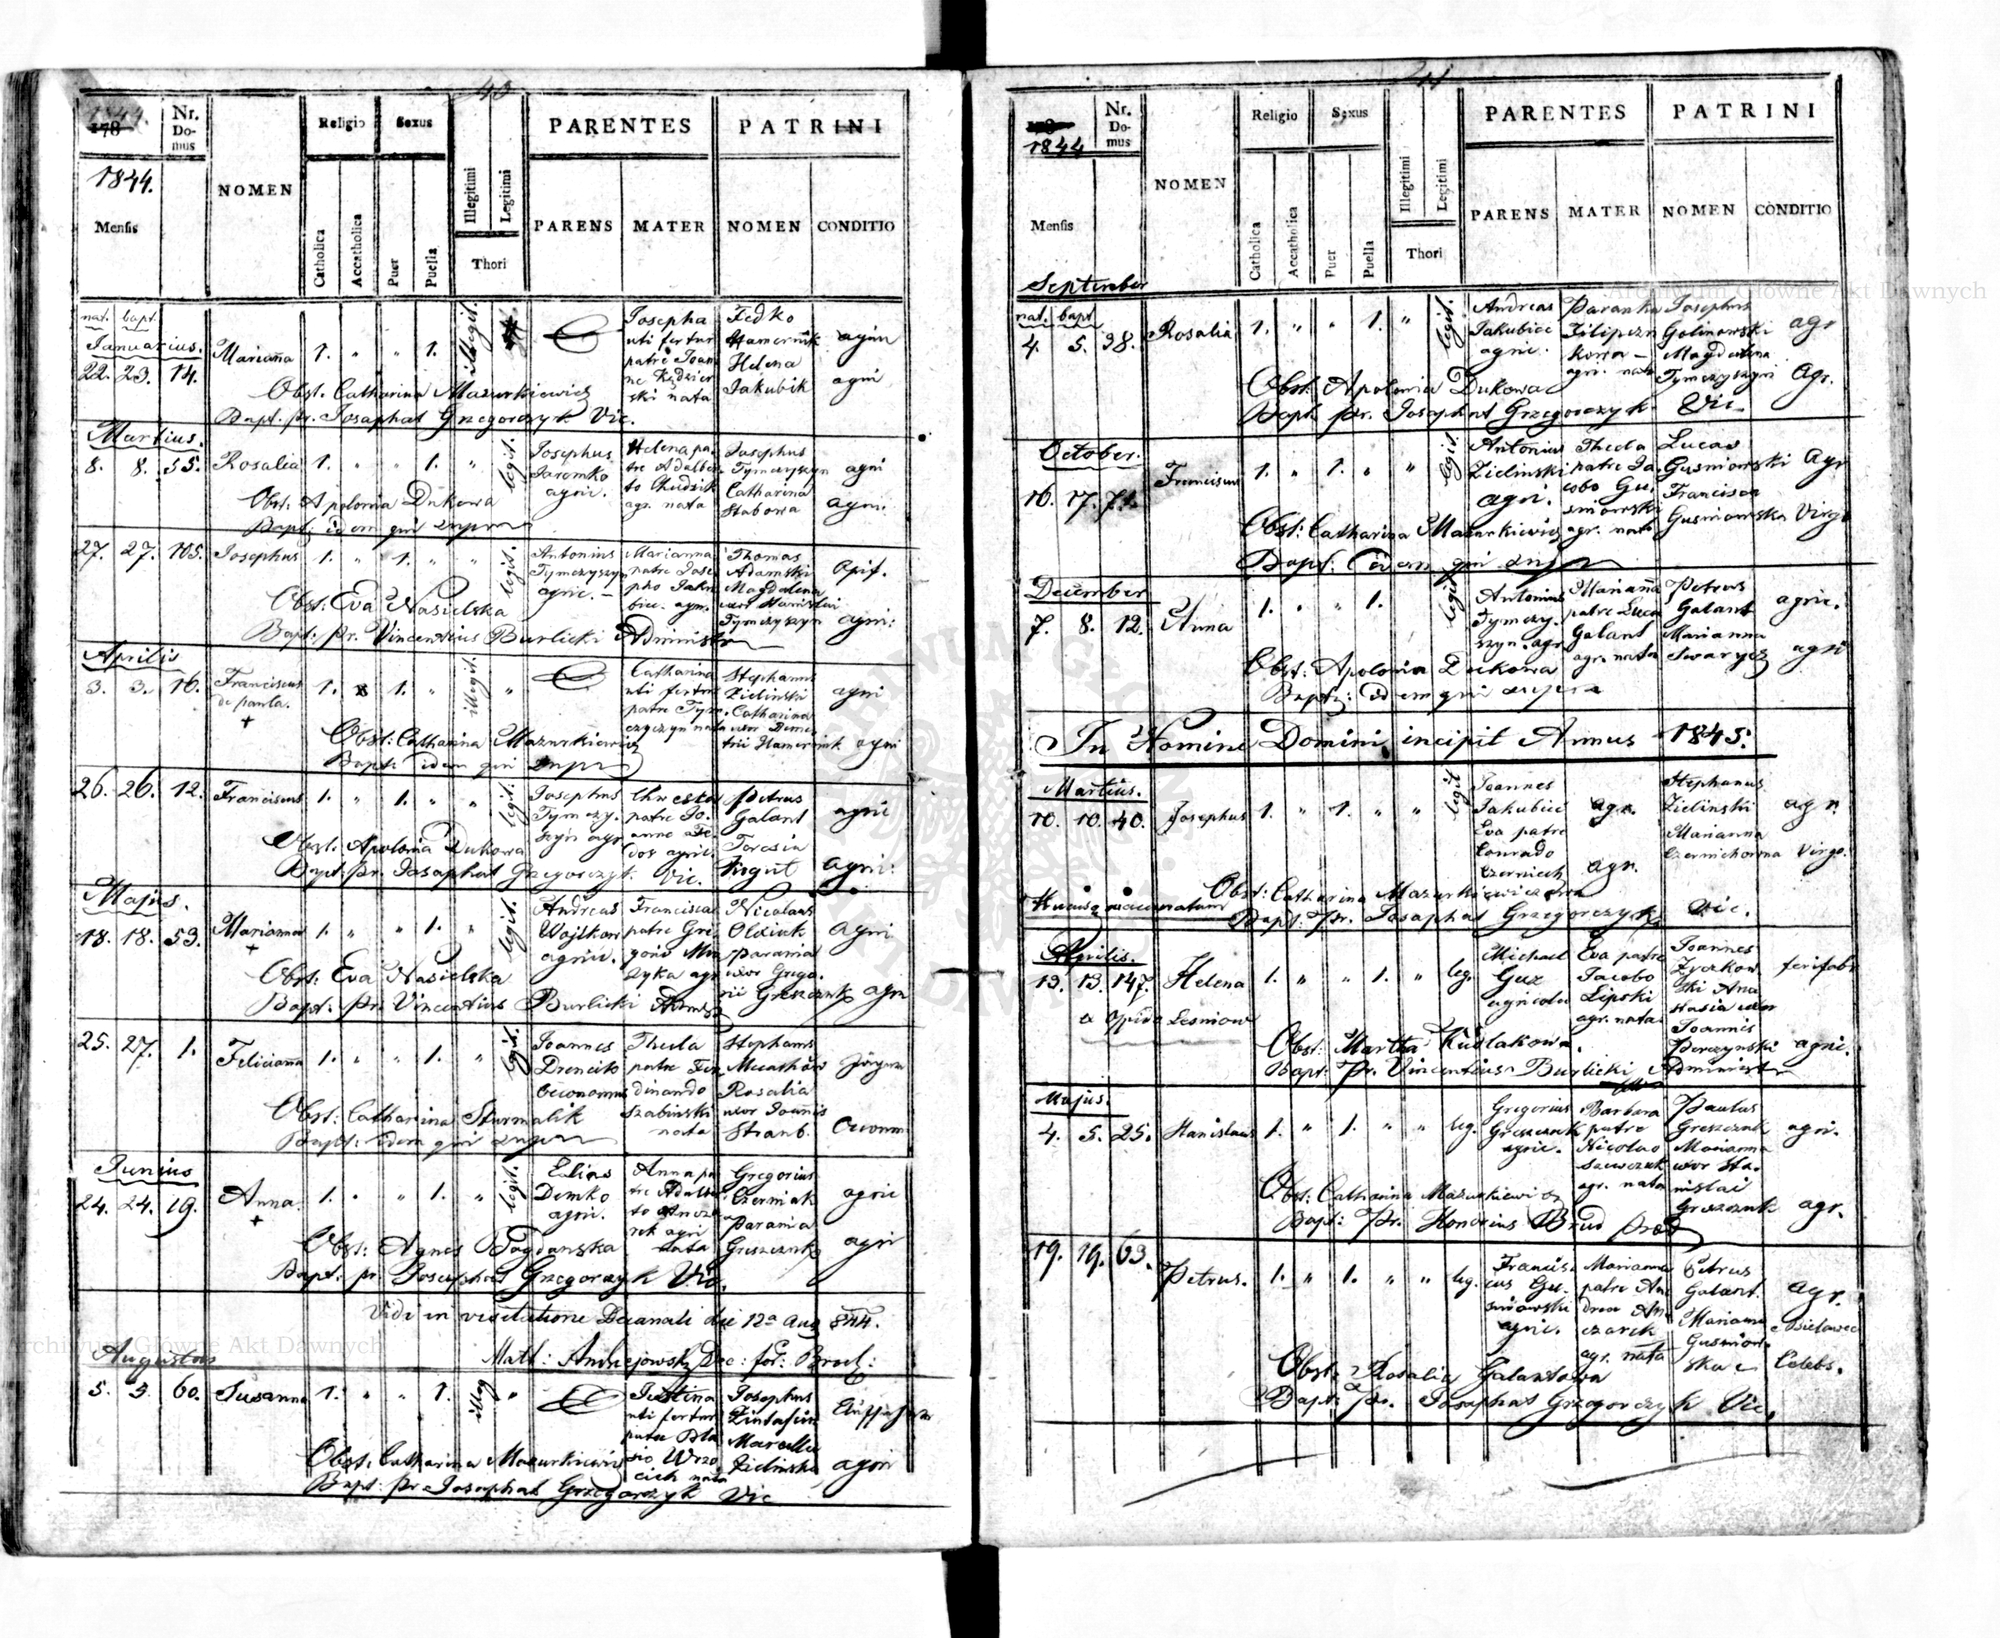 40
1844.
178
Nr. Domus
NOMEN
Religio
Sexus
PARENTES
PATRINI
1844.
Mensis
Catholica
Accatholica
Puer
Puella
Illegitimi
Legitimi
Thori
PARENS
MATER
NOMEN
CONDITIO
nat. bapt.
Januarius.
22. 23. 14. Marianna 1. " " 1. illegit.
Josepha uti fertur patre Joanne Kędzierski nata
Fedko Hamernik agri
Helena Jakubik agri
Obst. Catharina Mazurkiewicz
Bapt. pr. Josaphat Grzegorczyk Vic.
Martius.
8. 8. 55. Rosalia 1. " " 1. " legit.
Josephus Jaremko agric.
Helena patre Adalberto Chudzik agr. nata
Josephus Tymczyszyn agri
Catharina Stabowa agri.
Obst. Apolonia Dukowa
Bapt: idem qui supra
27. 27. 105. Josephus 1. " 1. " " legit.
Antonius Tymczyszyn agric.
Marianna patre Josepho Jakubiec. agr.
Thomas Adamski Opif.
Magdalena uxor Stanislai Tymczyszyn agri:
Obst: Eva Nasielska
Bapt: pr. Vincentius Burlicki Administr
Aprilis
3. 3. 16. Franciscus de paula. 1. 1. " illegit. "
Catharina uti fertur patre Tymczyszyn nata
Stephanus Zielinski agri
Catharina uxor Demetrii Hamernik agri
Obst: Catharina Mazurkiewicz
Bapt: idem qui supra
26. 26. 12. Franciscus 1. " 1. " " legit.
Josephus Tymczyszyn agr
patre Joanne agric.
Petrus Galant agri
Teresia agri.
Obst. Apolonia Dukowa
Bapt: pr. Josaphat Grzegorczyk Vic.
Majus.
18. 18. 53. Marianna 1. " " 1. " legit.
Andreas agric.
Francisca patre agr
Nicolaus agri
Parania uxor Gregorii Greszczuk agri
Obst: Eva Nasielska
Bapt. pr. Vincentius Burlicki
25. 27. 1. Felicianna 1. " " 1. " legit.
Joannes Oeconomus
Thecla patre Ferdinando Szabinski nata
Stephanus
Rosalia uxor Joannis
Obst: Catharina Sturmalik
Bapt: idem qui supra
Junius
24. 24. 19. Anna. 1. " " 1. " legit.
Elias Demko agri.
Anna patre Adalberto agri nata
Gregorius Czerniak agric
Parania Greszczuk agri
Obst: Agnes Bogdanska
Bapt. pr. Josaphat Grzegorczyk Vic.
Vidi in visitatione Decanali die 12a Aug 844.
Augustus
5. 5. 60. Susanna 1. " " 1. illeg "
Justina uti fertur patre Blasio nata
Josephus
Marcella Zielinska agri
Obst. Catharina Mazurkiewicz
Bapt: pr. Josaphat Grzegorczyk Vic
41
1844
Nr. Domus
NOMEN
Religio
Sexus
PARENTES
PATRINI
Mensis
Catholica
Accatholica
Puer
Puella
Illegitimi
Legitimi
Thori
PARENS
MATER
NOMEN
CONDITIO
September
nat. bapt
4. 5. 38. Rosalia 1. " " 1. " legit.
Andreas Jakubiec agric.
Paranka agri. nata
Josephus Galinowski agr
Magdalena Agr.
Obst. Apolonia Dukowa
Bapt. pr. Josaphat Grzegorczyk Vic
October.
16. 17. Franciscus 1. " 1. " " legit
Antonius Zielinski agri.
Thecla patre Jacobo Gusniowski agr. nata
Lucas Gusniowski Agr
Francisca Gusniowska Virgo
Obst: Catharina Mazurkiewicz
Bapt: idem qui supra
December
7. 8. 12. Anna 1. " " 1. legit
Antonius Tymczyszyn. agr
Marianna patre Luca Galant agr. nata
Petrus Galant agric.
Marianna Swarycz agri
Obst: Apolonia Dukowa
Baptz: idem qui supra
In Nomine Domini incipit Annus 1845.
Martius.
10. 10. 40. Josephus 1. " 1. " " legit
Joannes Jakubiec agr.
Eva patre Conrado Czerniech agr.
Stephanus Zielinski agr.
Marianna Czernichowna Virgo.
Obst: Catharina Mazurkiewiczowa
Hucusque
Bapt: Pr. Josaphat Grzegorczyk Vic.
Aprilis.
13. 13. 147. Helena 1. " " 1. " leg.
ex Opido Lesniow
Michael Guz agricola
Eva patre Jacobo Lipski agr. nata
Joannes
Anastasia uxor Joannis Perczynski agric.
Obst: Martha Kudlakowa.
Bapt: Pr. Vincentius Burlicki Administr
Majus.
4. 5. 25. Stanislaus 1. " 1. " " leg.
Gregorius Greszczuk agric.
Barbara patre Nicolao Szewczuk agr. nata
Paulus Greszczuk agri.
Marianna uxor Stanislai Greszczuk agr.
Obst: Catharina Mazurkiewicz
Bapt: Pr. Honorius Brud
19. 19. 63. Petrus. 1. " 1. " " leg.
Franciscus Gusniowski agric.
Marianna patre Andrea agr. nata
Petrus Galant. agr.
Marianna Gusniowska Celebs.
Obst: Rosalia Galantowa
Bapt: Pr. Josaphat Grzegorczyk Vic.
Archiwum Główne Akt Dawnych
Archiwum Główne Akt Dawnych